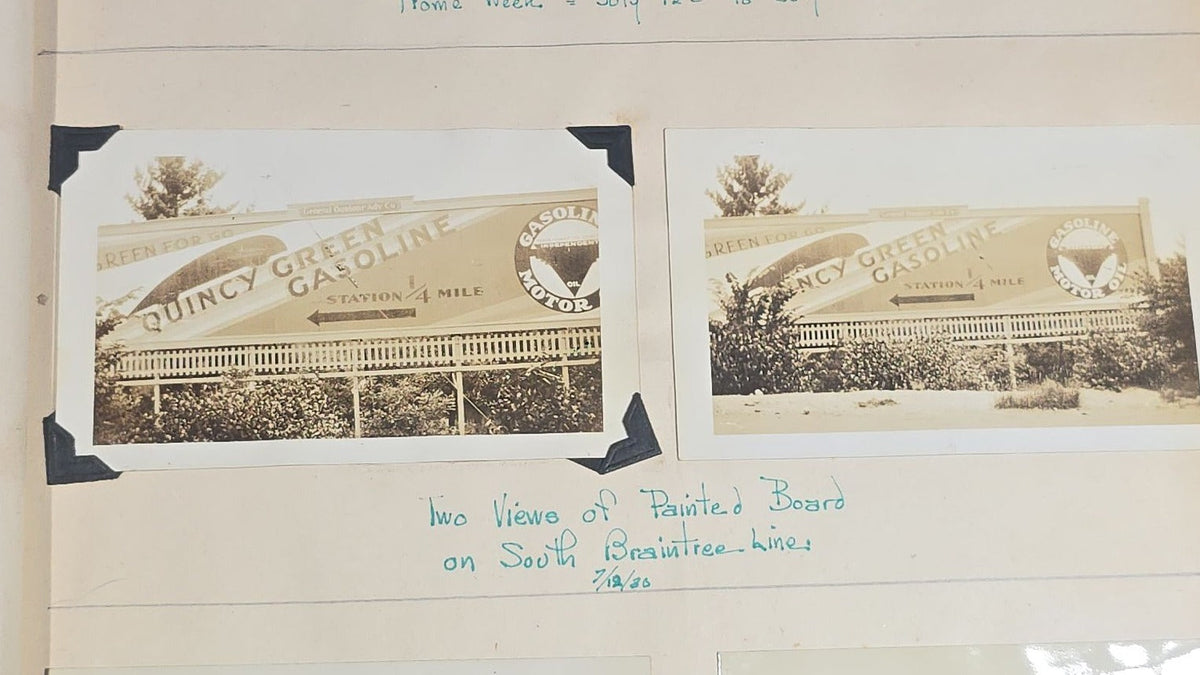 Home Week = July
Two Views of Painted Board
on South Braintree Line.
7/12/30
General Outdoor Adv. Co.
GREEN FOR GO
QUINCY GREEN
GASOLINE
STATION 1/4 MILE
GASOLINE
INDEPENDENT
OIL
MOTOR
REEN FOR GO
NCY GREEN
GASOLINE
1/4 MILE
GASOLINE
MOTOR OIL